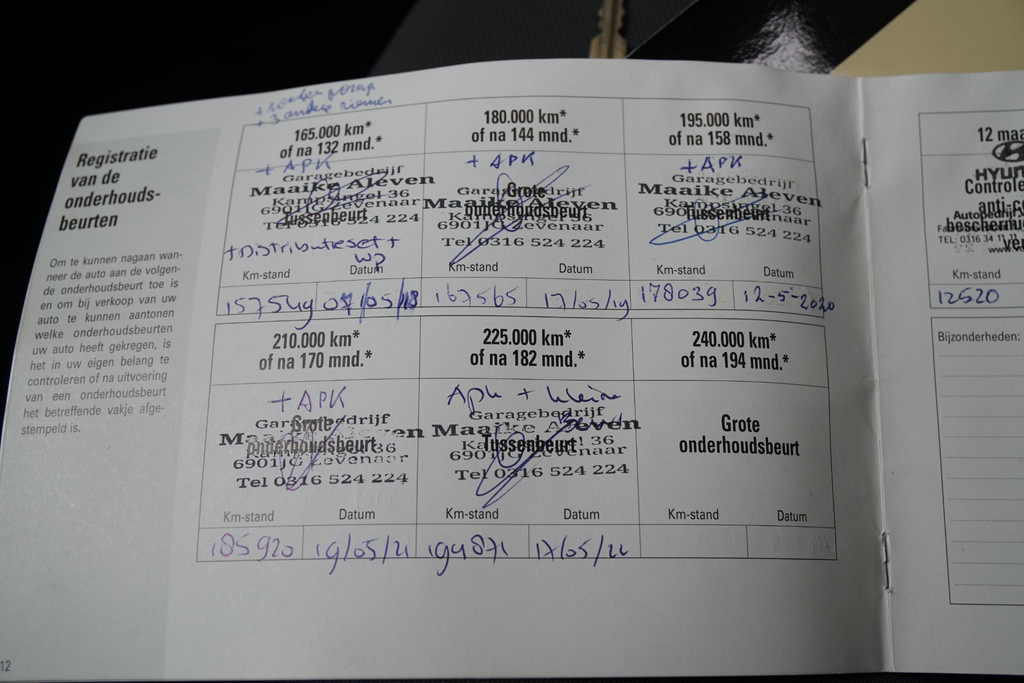 Registratie
van de
onderhouds-
beurten
Om te kunnen nagaan wan-
neer de auto aan de volgen-
de onderhoudsbeurt toe is
en om bij verkoop van uw
auto te kunnen aantonen
welke onderhoudsbeurten
uw auto heeft gekregen, is
het in uw eigen belang te
controleren of na uitvoering
van een onderhoudsbeurt
het betreffende vakje afge-
stempeld is.
12
165.000 km*
of na 132 mnd.*
+ APK
Garagebedrijf
Maaike Aleven
Kampsingel 36
6901JG Zevenaar
Tussenbeurt
Tel 0316 524 224
+Distributieset +
WP
Km-stand Datum
157549 07/05/18
180.000 km*
of na 144 mnd.*
+ APK
Garagebedrijf
Grote
Maaike Aleven
onderhoudsbeurt
Kampsingel 36
6901JG Zevenaar
Tel 0316 524 224
Km-stand Datum
167565 17/05/19
195.000 km*
of na 158 mnd.*
+ APK
Garagebedrijf
Maaike Aleven
Kampsingel 36
6901JG Zevenaar
Tussenbeurt
Tel 0316 524 224
Km-stand Datum
178039 12-5-2020
210.000 km*
of na 170 mnd.*
+ APK
Garagebedrijf
Grote
Maaike Aleven
onderhoudsbeurt
Kampsingel 36
6901JG Zevenaar
Tel 0316 524 224
Km-stand Datum
185920 19/05/21
225.000 km*
of na 182 mnd.*
Apk + kleine
Beurt
Garagebedrijf
Maaike Aleven
Tussenbeurt
Kampsingel 36
6901JG Zevenaar
Tel 0316 524 224
Km-stand Datum
194871 17/05/22
240.000 km*
of na 194 mnd.*
Grote
onderhoudsbeurt
Km-stand Datum
12 maa
HYUN
Controle
anti-co
beschermi
TEL: 0316 34 11 11
Km-stand
12520
Bijzonderheden: